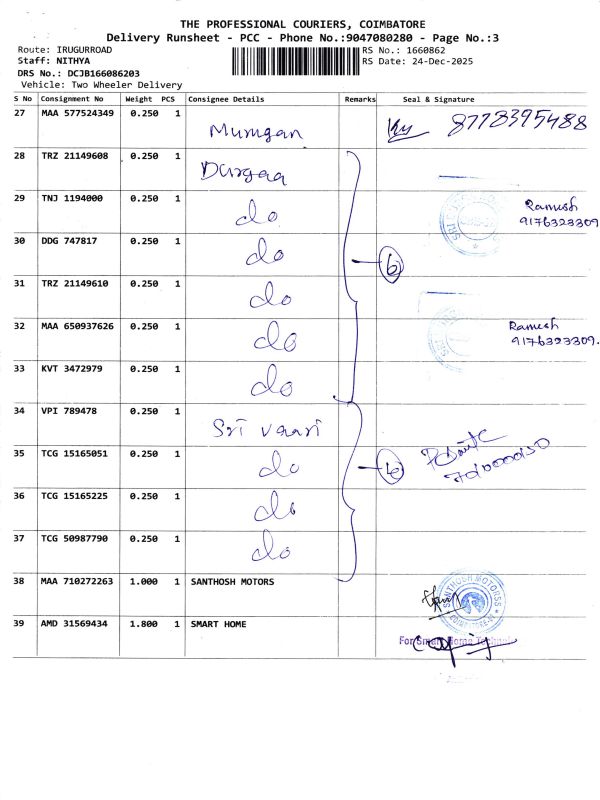 THE PROFESSIONAL COURIERS, COIMBATORE
Delivery Runsheet - PCC - Phone No.:9047080280 - Page No.:3
Route: IRUGURROAD RS No.: 1660862
Staff: NITHYA RS Date: 24-Dec-2025
DRS No.: DCJB166086203
Vehicle: Two Wheeler Delivery
S No Consignment No Weight PCS Consignee Details Remarks Seal & Signature
27 MAA 577524349 0.250 1 Murugan 8778395488
28 TRZ 21149608 0.250 1 Durgaa
29 TNJ 1194000 0.250 1 do Ramesh
9176323309
30 DDG 747817 0.250 1 do 6
31 TRZ 21149610 0.250 1 do
32 MAA 650937626 0.250 1 do Ramesh
9176323309.
33 KVT 3472979 0.250 1 do
34 VPI 789478 0.250 1 Sri Vaari
35 TCG 15165051 0.250 1 do
36 TCG 15165225 0.250 1 do
37 TCG 50987790 0.250 1 do
38 MAA 710272263 1.000 1 SANTHOSH MOTORS SANTHOSH MOTORSS
39 AMD 31569434 1.800 1 SMART HOME
For Smart Home